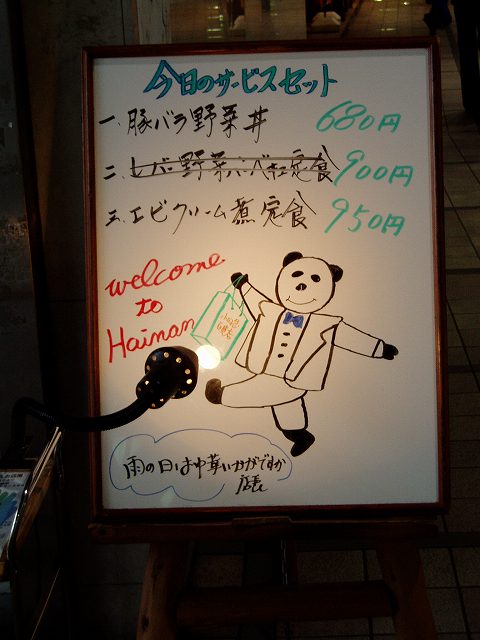 今日のサービスセット
一、豚バラ野菜丼 680円
二、レバー野菜 定食 900円
三、エビクリーム煮定食 950円
welcome
to
Hainan
雨の日は中華いかがですか
店長